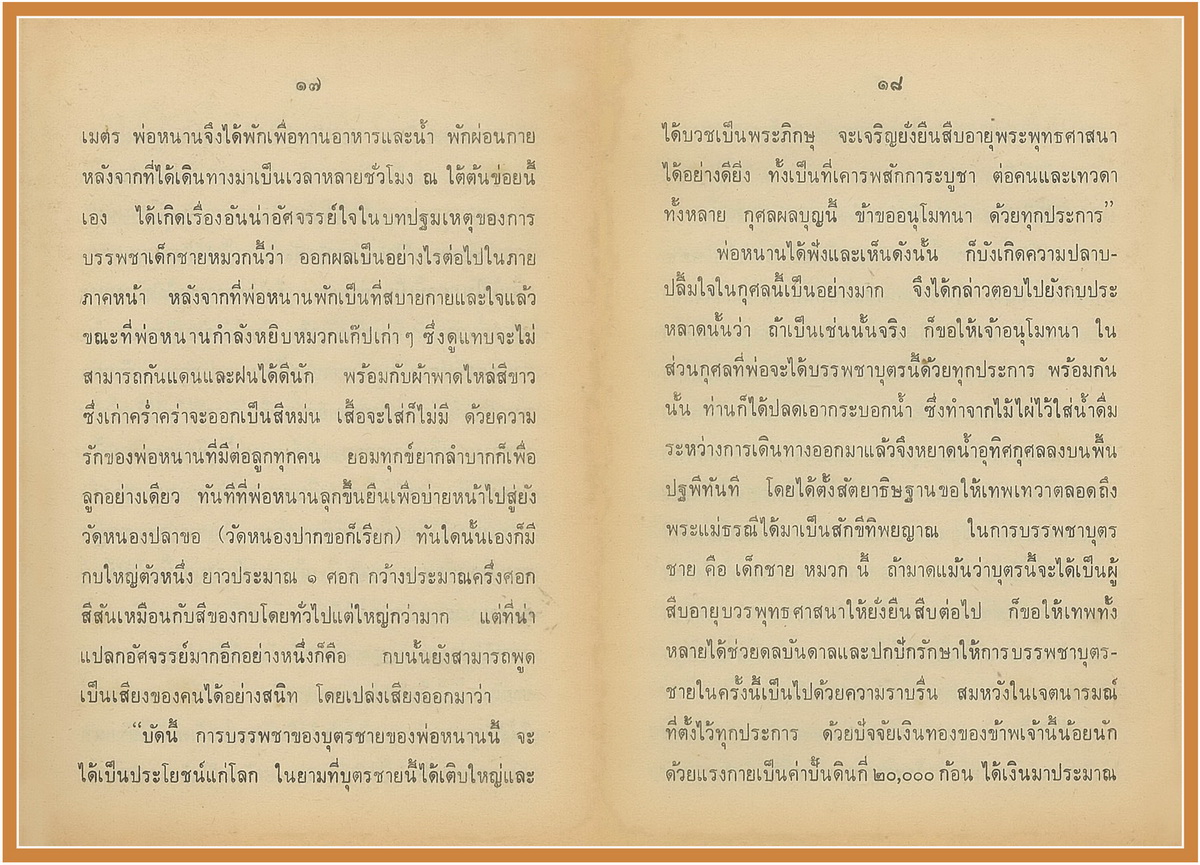 ๑๗
เมตร พ่อหนานจึงได้พักเพื่อทานอาหารและน้ำ พักผ่อนกาย
หลังจากที่ได้เดินทางมาเป็นเวลาหลายชั่วโมง ณ ใต้ต้นข่อยนี้
เอง ได้เกิดเรื่องอันน่าอัศจรรย์ใจในบทปฐมเหตุของการ
บรรพชาเด็กชายหมวกนี้ว่า ออกผลเป็นอย่างไรต่อไปในภาย
ภาคหน้า หลังจากที่พ่อหนานพักเป็นที่สบายกายและใจแล้ว
ขณะที่พ่อหนานกำลังหยิบหมวกแก๊ปเก่า ๆ ซึ่งดูแทบจะไม่
สามารถกันแดนและฝนได้ดีนัก พร้อมกับผ้าพาดไหล่สีขาว
ซึ่งเก่าคร่ำคร่าจะออกเป็นสีหม่น เสื้อจะใส่ก็ไม่มี ด้วยความ
รักของพ่อหนานที่มีต่อลูกทุกคน ยอมทุกข์ยากลำบากก็เพื่อ
ลูกอย่างเดียว ทันทีที่พ่อหนานลุกขึ้นยืนเพื่อบ่ายหน้าไปสู่ยัง
วัดหนองปลาขอ (วัดหนองปากขอก็เรียก) ทันใดนั้นเองก็มี
กบใหญ่ตัวหนึ่ง ยาวประมาณ ๑ ศอก กว้างประมาณครึ่งศอก
สีสันเหมือนกับสีของกบโดยทั่วไปแต่ใหญ่กว่ามาก แต่ที่น่า
แปลกอัศจรรย์มากอีกอย่างหนึ่งก็คือ กบนั้นยังสามารถพูด
เป็นเสียงของคนได้อย่างสนิท โดยเปล่งเสียงออกมาว่า
“บัดนี้ การบรรพชาของบุตรชายของพ่อหนานนี้ จะ
ได้เป็นประโยชน์แก่โลก ในยามที่บุตรชายนี้ได้เติบใหญ่และ
๑๘
ได้บวชเป็นพระภิกษุ จะเจริญยั่งยืนสืบอายุพระพุทธศาสนา
ได้อย่างดียิ่ง ทั้งเป็นที่เคารพสักการะบูชา ต่อคนและเทวดา
ทั้งหลาย กุศลผลบุญนี้ ข้าขออนุโมทนา ด้วยทุกประการ”
พ่อหนานได้ฟังและเห็นดังนั้น ก็บังเกิดความปลาบ-
ปลื้มใจในกุศลนี้เป็นอย่างมาก จึงได้กล่าวตอบไปยังกบประ
หลาดนั้นว่า ถ้าเป็นเช่นนั้นจริง ก็ขอให้เจ้าอนุโมทนา ใน
ส่วนกุศลที่พ่อจะได้บรรพชาบุตรนี้ด้วยทุกประการ พร้อมกัน
นั้น ท่านก็ได้ปลดเอากระบอกน้ำ ซึ่งทำจากไม้ไผ่ไว้ใส่น้ำดื่ม
ระหว่างการเดินทางออกมาแล้วจึงหยาดน้ำอุทิศกุศลลงบนพื้น
ปฐพีทันที โดยได้ตั้งสัตยาธิษฐานขอให้เทพเทวาตลอดถึง
พระแม่ธรณีได้มาเป็นสักขีทิพยญาณ ในการบรรพชาบุตร
ชาย คือ เด็กชาย หมวก นี้ ถ้ามาดแม้นว่าบุตรนี้จะได้เป็นผู้
สืบอายุบวรพุทธศาสนาให้ยั่งยืนสืบต่อไป ก็ขอให้เทพทั้ง
หลายได้ช่วยดลบันดาลและปกปักรักษาให้การบรรพชาบุตร-
ชายในครั้งนี้เป็นไปด้วยความราบรื่น สมหวังในเจตนารมณ์
ที่ตั้งไว้ทุกประการ ด้วยปัจจัยเงินทองของข้าพเจ้านี้น้อยนัก
ด้วยแรงกายเป็นค่าปั้นดินกี่ ๒๐,๐๐๐ ก้อน ได้เงินมาประมาณ